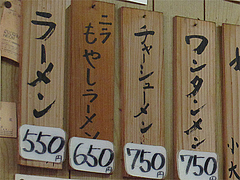 ラーメン
550円
ニラ
もやしラーメン
650円
チャーシューメン
750円
ワンタンメン
750円
小
大